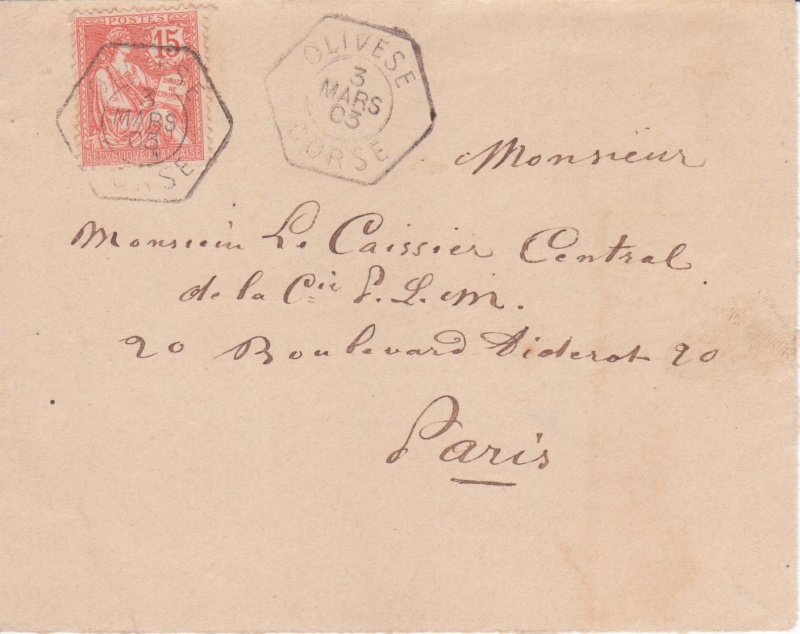 POSTES
15
DROITS
DE
L'HOMME
REPUBLIQUE FRANÇAISE
3
MARS
03
CORSE
OLIVESE
3
MARS
03
CORSE
Monsieur
Monsieur Le Caissier Central
de la Cie P. L. M.
20 Boulevard Diderot 20
Paris